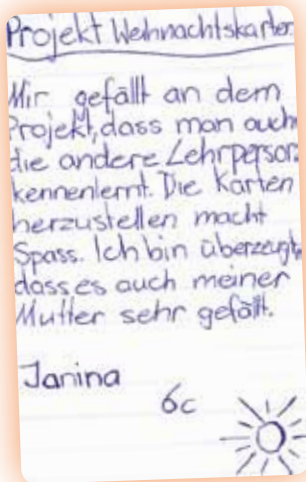 Projekt Weihnachtskarten
Mir gefällt an dem
Projekt, dass man auch
die andere Lehrperson
kennenlernt. Die Karten
herzustellen macht
Spass. Ich bin überzeugt,
dass es auch meiner
Mutter sehr gefällt.
Janina
6c